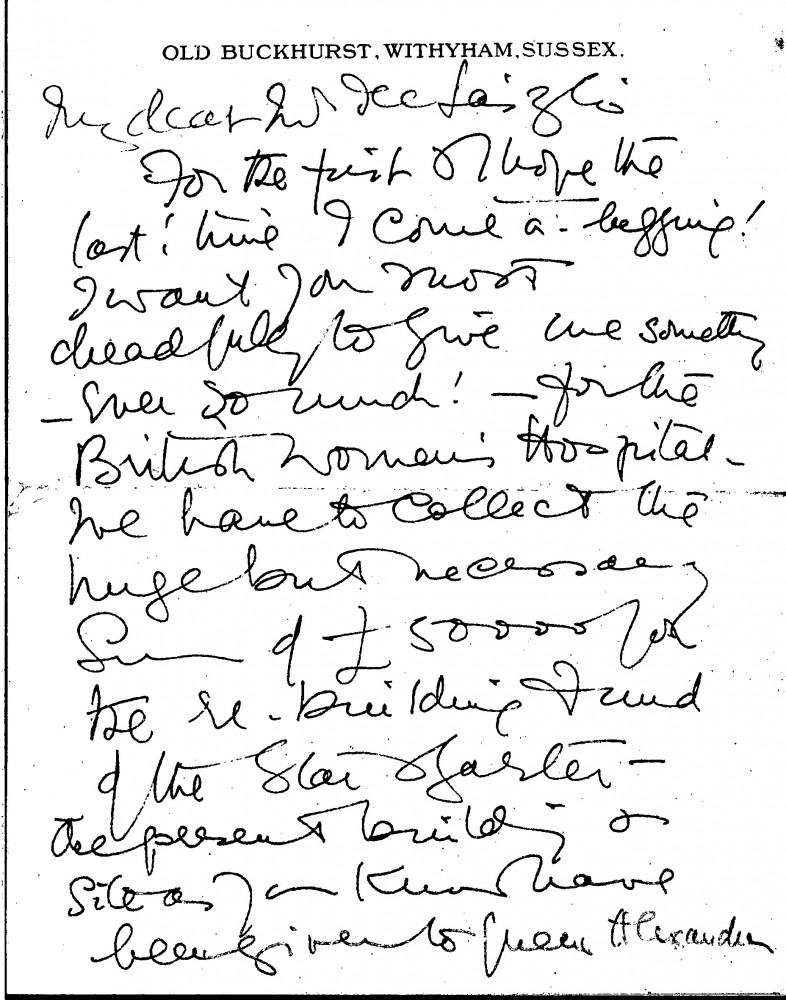 OLD BUCKHURST, WITHYHAM, SUSSEX.
My dear Mr de László
For the first & I hope the
last! time I come a-begging!
I want you most
dreadfully to give me something
– ever so much! – for the
British Women's Hospital –
We have to collect the
huge but necessary
Sum of £50000 for
the re-building Fund
of the Star & Garter –
the present building &
Site as you know have
been given to Queen Alexandra